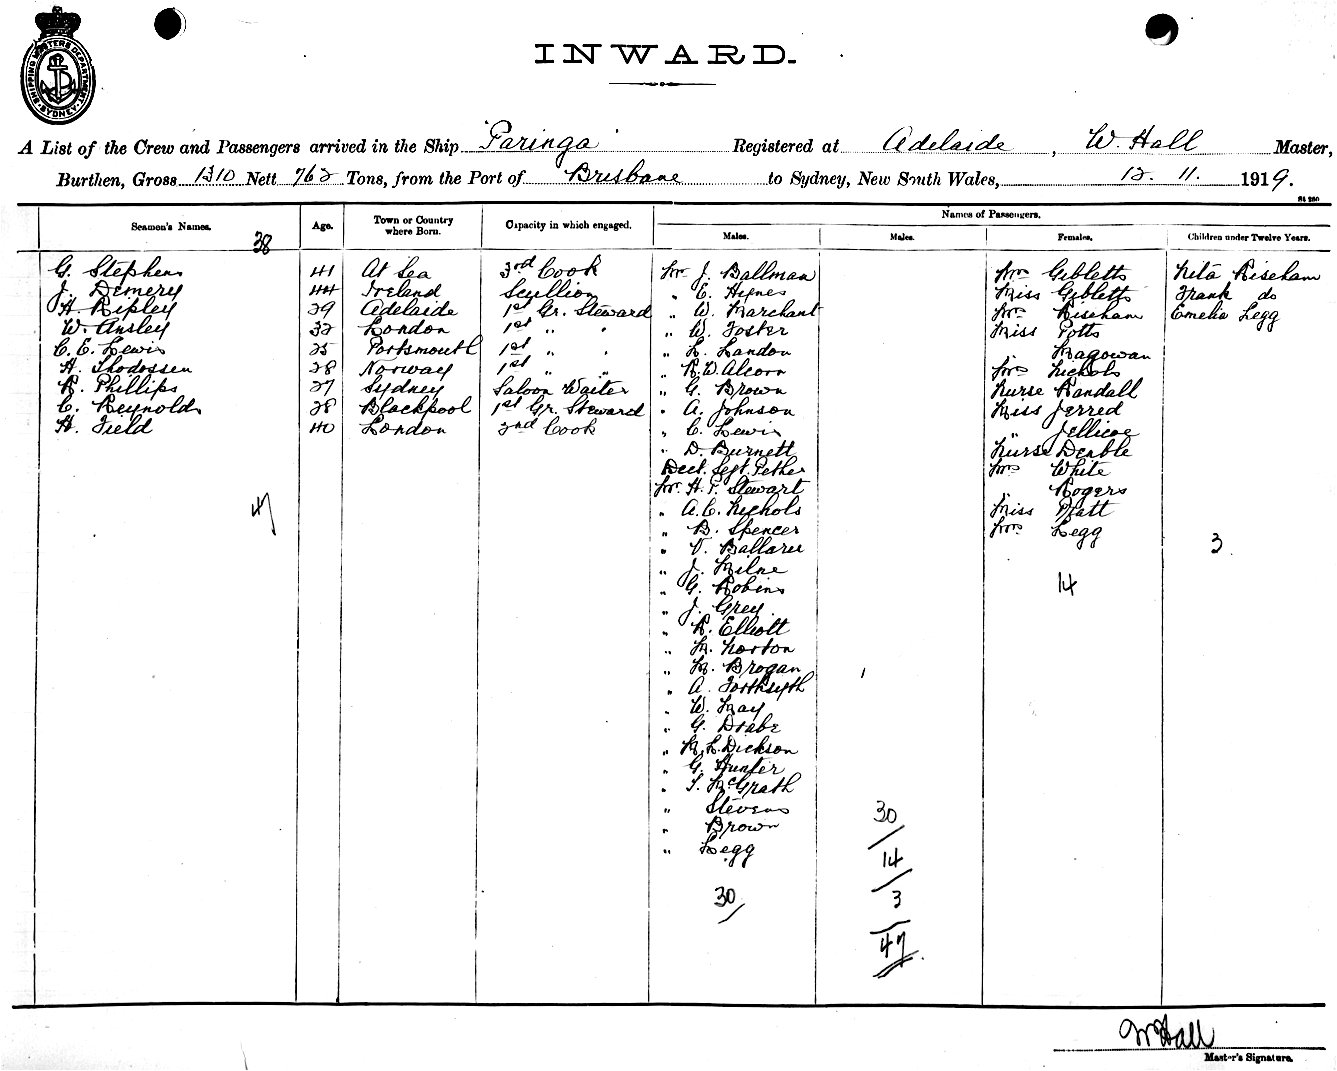 SHIPPING MASTERS DEPARTMENT SYDNEY
INWARD.
A List of the Crew and Passengers arrived in the Ship "Paringa" Registered at Adelaide, W. Hall Master,
Burthen, Gross 1310 Nett 762 Tons, from the Port of Brisbane to Sydney, New South Wales, 12. 11. 1919.
Names of Passengers.
Seamen's Names. Age. Town or Country where Born. Capacity in which engaged. Males. Males. Females. Children under Twelve Years.
38
G. Stephens 41 At Sea 3rd Cook Mr. J. Ballman Mrs Gibletts Nita Riseham
J. Demery 44 Ireland Scullion " E. Hynes Miss Gibletts Frank do
H. Ripley 29 Adelaide 1st Gr. Steward " W. Marchant Mrs Riseham Emelia Legg
W. Ansley 32 London 1st " " " W. Foster Miss Potts
C. E. Lewis 25 Portsmouth 1st " " " L. Landon " Magowan
H. Thodossen 28 Norway 1st " " " R. W. Alcorn Mrs Nichols
R. Phillips 27 Sydney Saloon Waiter " G. Brown Nurse Randall
C. Reynolds 28 Blackpool 1st Gr. Steward " A. Johnson Miss Jerred
H. Field 40 London 2nd Cook " C. Lewis " Jellicoe
" D. Burnett Nurse Denble
Dect. Sgt. Pether Mrs White
Mr. H. P. Stewart " Rogers
" A. C. Nichols Miss Platt
" B. Spencer Mrs Legg
" V. Ballarer 3
" J. Milne
" G. Robins 14
" J. Grey
" R. Elliott
" M. Norton
" M. Brogan
" A. Forthsyth
" W. May
" G. Drabe
" M. L. Dickson
" G. Hunter
" T. McGrath
" Stevens 30
" Brown
" Legg 14
30 3
47
47
W Hall
Master's Signature.